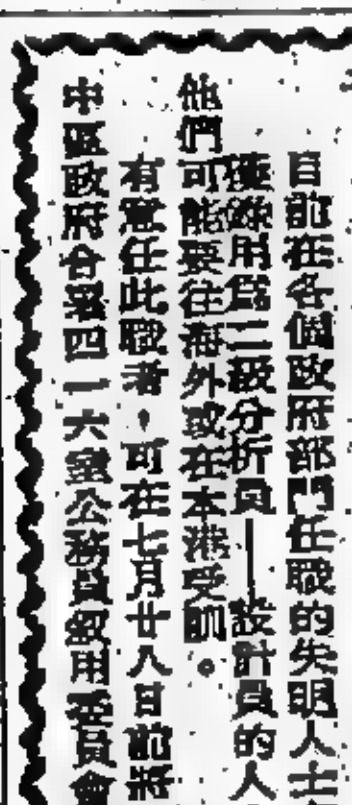 目前在各個政府部門任職的失明人士
獲錄用為二級分析員——設計員的人
他們可能要往海外或在本港受訓。
有意任此職者,可在七月廿八日前將
中區政府合署四一六室公務員敘用委員會